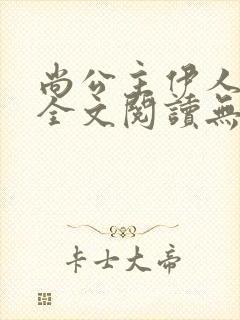 尚公主伊人
全文閱讀無
卡士大帝